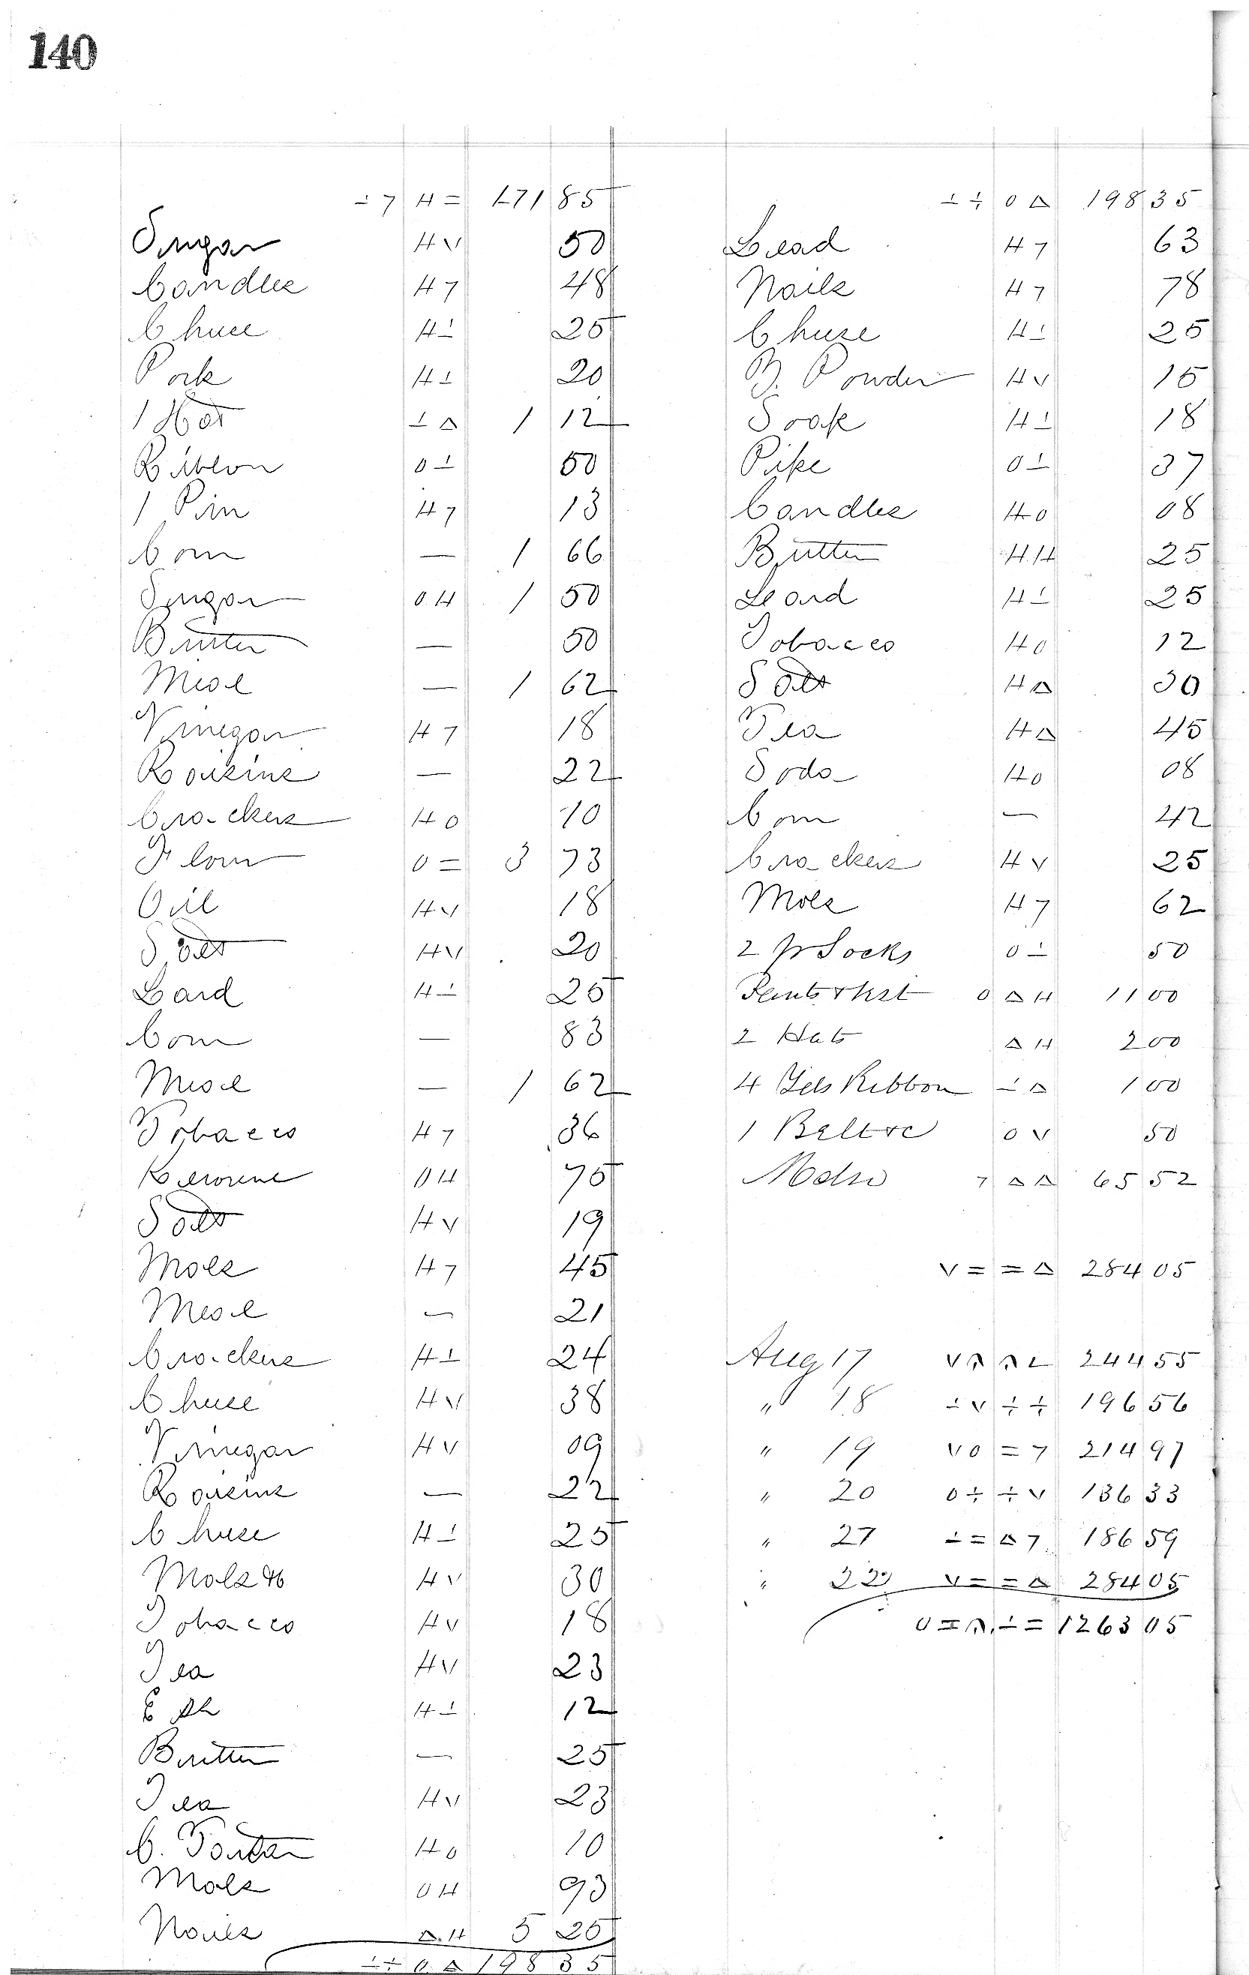 140
∸ 7 H = 171 85
Sugar H V 50
Candles H 7 48
Cheese H ∸ 25
Pork H ∸ 20
1 Hat ∸ △ 1 12
Ribbon 0 ∸ 50
1 Pin H 7 13
Corn — 1 66
Sugar 0 H 1 50
Butter — 50
Meal — 1 62
Vinegar H 7 18
Raisins — 22
Crackers H 0 10
Flour 0 = 3 73
Oil H V 18
Salt H V 20
Lard H ∸ 25
Corn — 83
Meal — 1 62
Tobacco H 7 36
Kerosene 0 H 75
Salt H V 19
Mols H 7 45
Meal — 21
Crackers H ∸ 24
Cheese H V 38
Vinegar H V 09
Raisins — 22
Cheese H ∸ 25
Mols H V 30
Tobacco H V 18
Tea H V 23
H ∸ 12
Butter — 25
Tea H V 23
C. Tartar H 0 10
Mols 0 H 93
Nails △ H 5 25
∸ ÷ 0 △ 198 35
∸ ÷ 0 △ 198 35
Lead H 7 63
Nails H 7 78
Cheese H ∸ 25
B. Powder H V 15
Soap H ∸ 18
Pipe 0 ∸ 37
Candles H 0 08
Butter H H 25
Leard H ∸ 25
Tobacco H 0 12
Salt H △ 30
Tea H △ 45
Soda H 0 08
Corn — 42
Crackers H V 25
Mols H 7 62
2 pr Socks 0 ∸ 50
Pants & Vst 0 △ H 11 00
2 Hats △ H 2 00
4 Yds Ribbon ∸ △ 1 00
1 Belt &c 0 V 50
Mdse 7 △ △ 65 52
V = = △ 284 05
Aug 17 V ⩑ ⩑ ∟ 244 55
" 18 ∸ V ÷ ÷ 196 56
" 19 V 0 = 7 214 97
" 20 0 ÷ ÷ V 136 33
" 21 ∸ = △ 7 186 59
" 22 V = = △ 284 05
0 = ⩑ ∸ = 1263 05